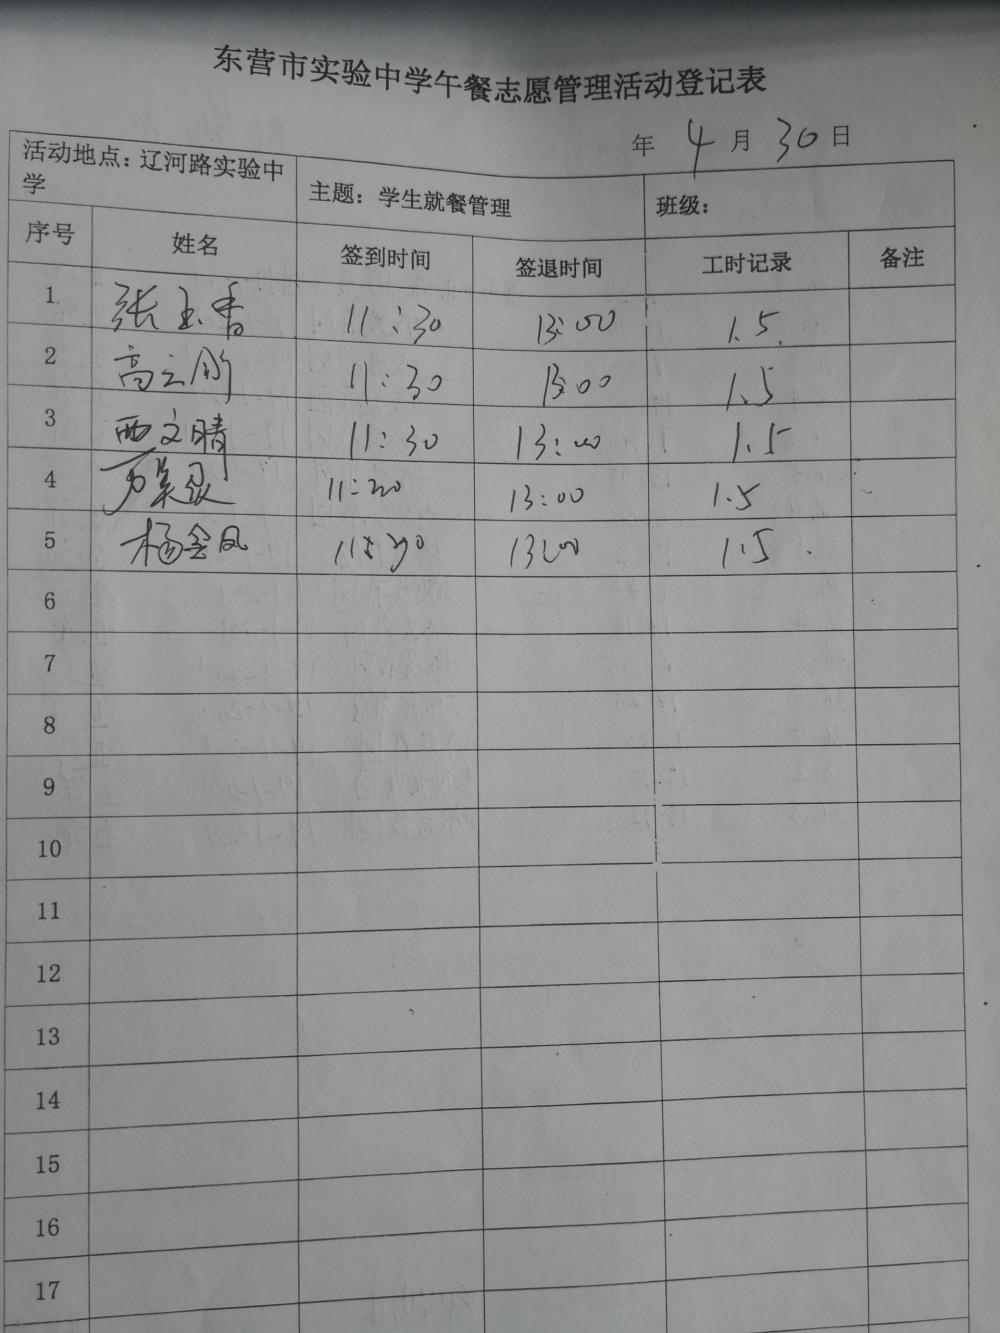 东营市实验中学午餐志愿管理活动登记表
年 4 月 30 日
活动地点：辽河路实验中学 主题：学生就餐管理 班级：
序号 姓名 签到时间 签退时间 工时记录 备注
1 张玉香 11:30 13:00 1.5
2 高云 11:30 13:00 1.5
3 西文晴 11:30 13:00 1.5
4 13:00 1.5
5 杨金凤 13:00 1.5
6
7
8
9
10
11
12
13
14
15
16
17